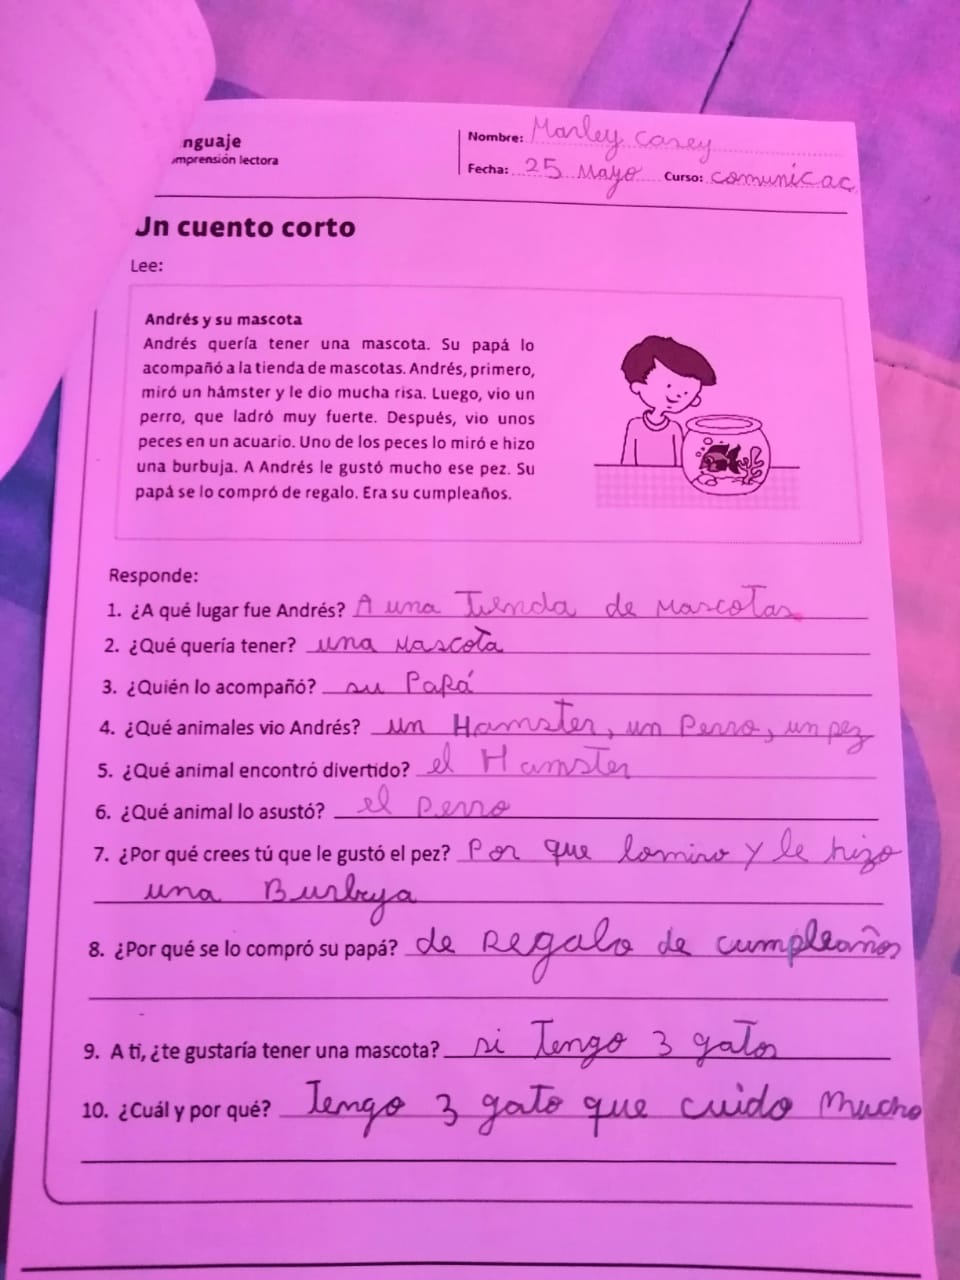 nguaje
omprensión lectora
Nombre: Marley Casey
Fecha: 25 Mayo Curso: comunicac
Un cuento corto
Lee:
Andrés y su mascota
Andrés quería tener una mascota. Su papá lo
acompañó a la tienda de mascotas. Andrés, primero,
miró un hámster y le dio mucha risa. Luego, vio un
perro, que ladró muy fuerte. Después, vio unos
peces en un acuario. Uno de los peces lo miró e hizo
una burbuja. A Andrés le gustó mucho ese pez. Su
papá se lo compró de regalo. Era su cumpleaños.
Responde:
1. ¿A qué lugar fue Andrés? A una Tienda de Mascotas
2. ¿Qué quería tener? una Mascota
3. ¿Quién lo acompañó? su Papá
4. ¿Qué animales vio Andrés? un Hamster, un Perro, un pez
5. ¿Qué animal encontró divertido? el Hamster
6. ¿Qué animal lo asustó? el perro
7. ¿Por qué crees tú que le gustó el pez? Por que lomiro y le hizo
una Burbuja
8. ¿Por qué se lo compró su papá? de Regalo de cumpleaños
9. A ti, ¿te gustaría tener una mascota? si Tengo 3 gatos
10. ¿Cuál y por qué? Tengo 3 gato que cuido Mucho